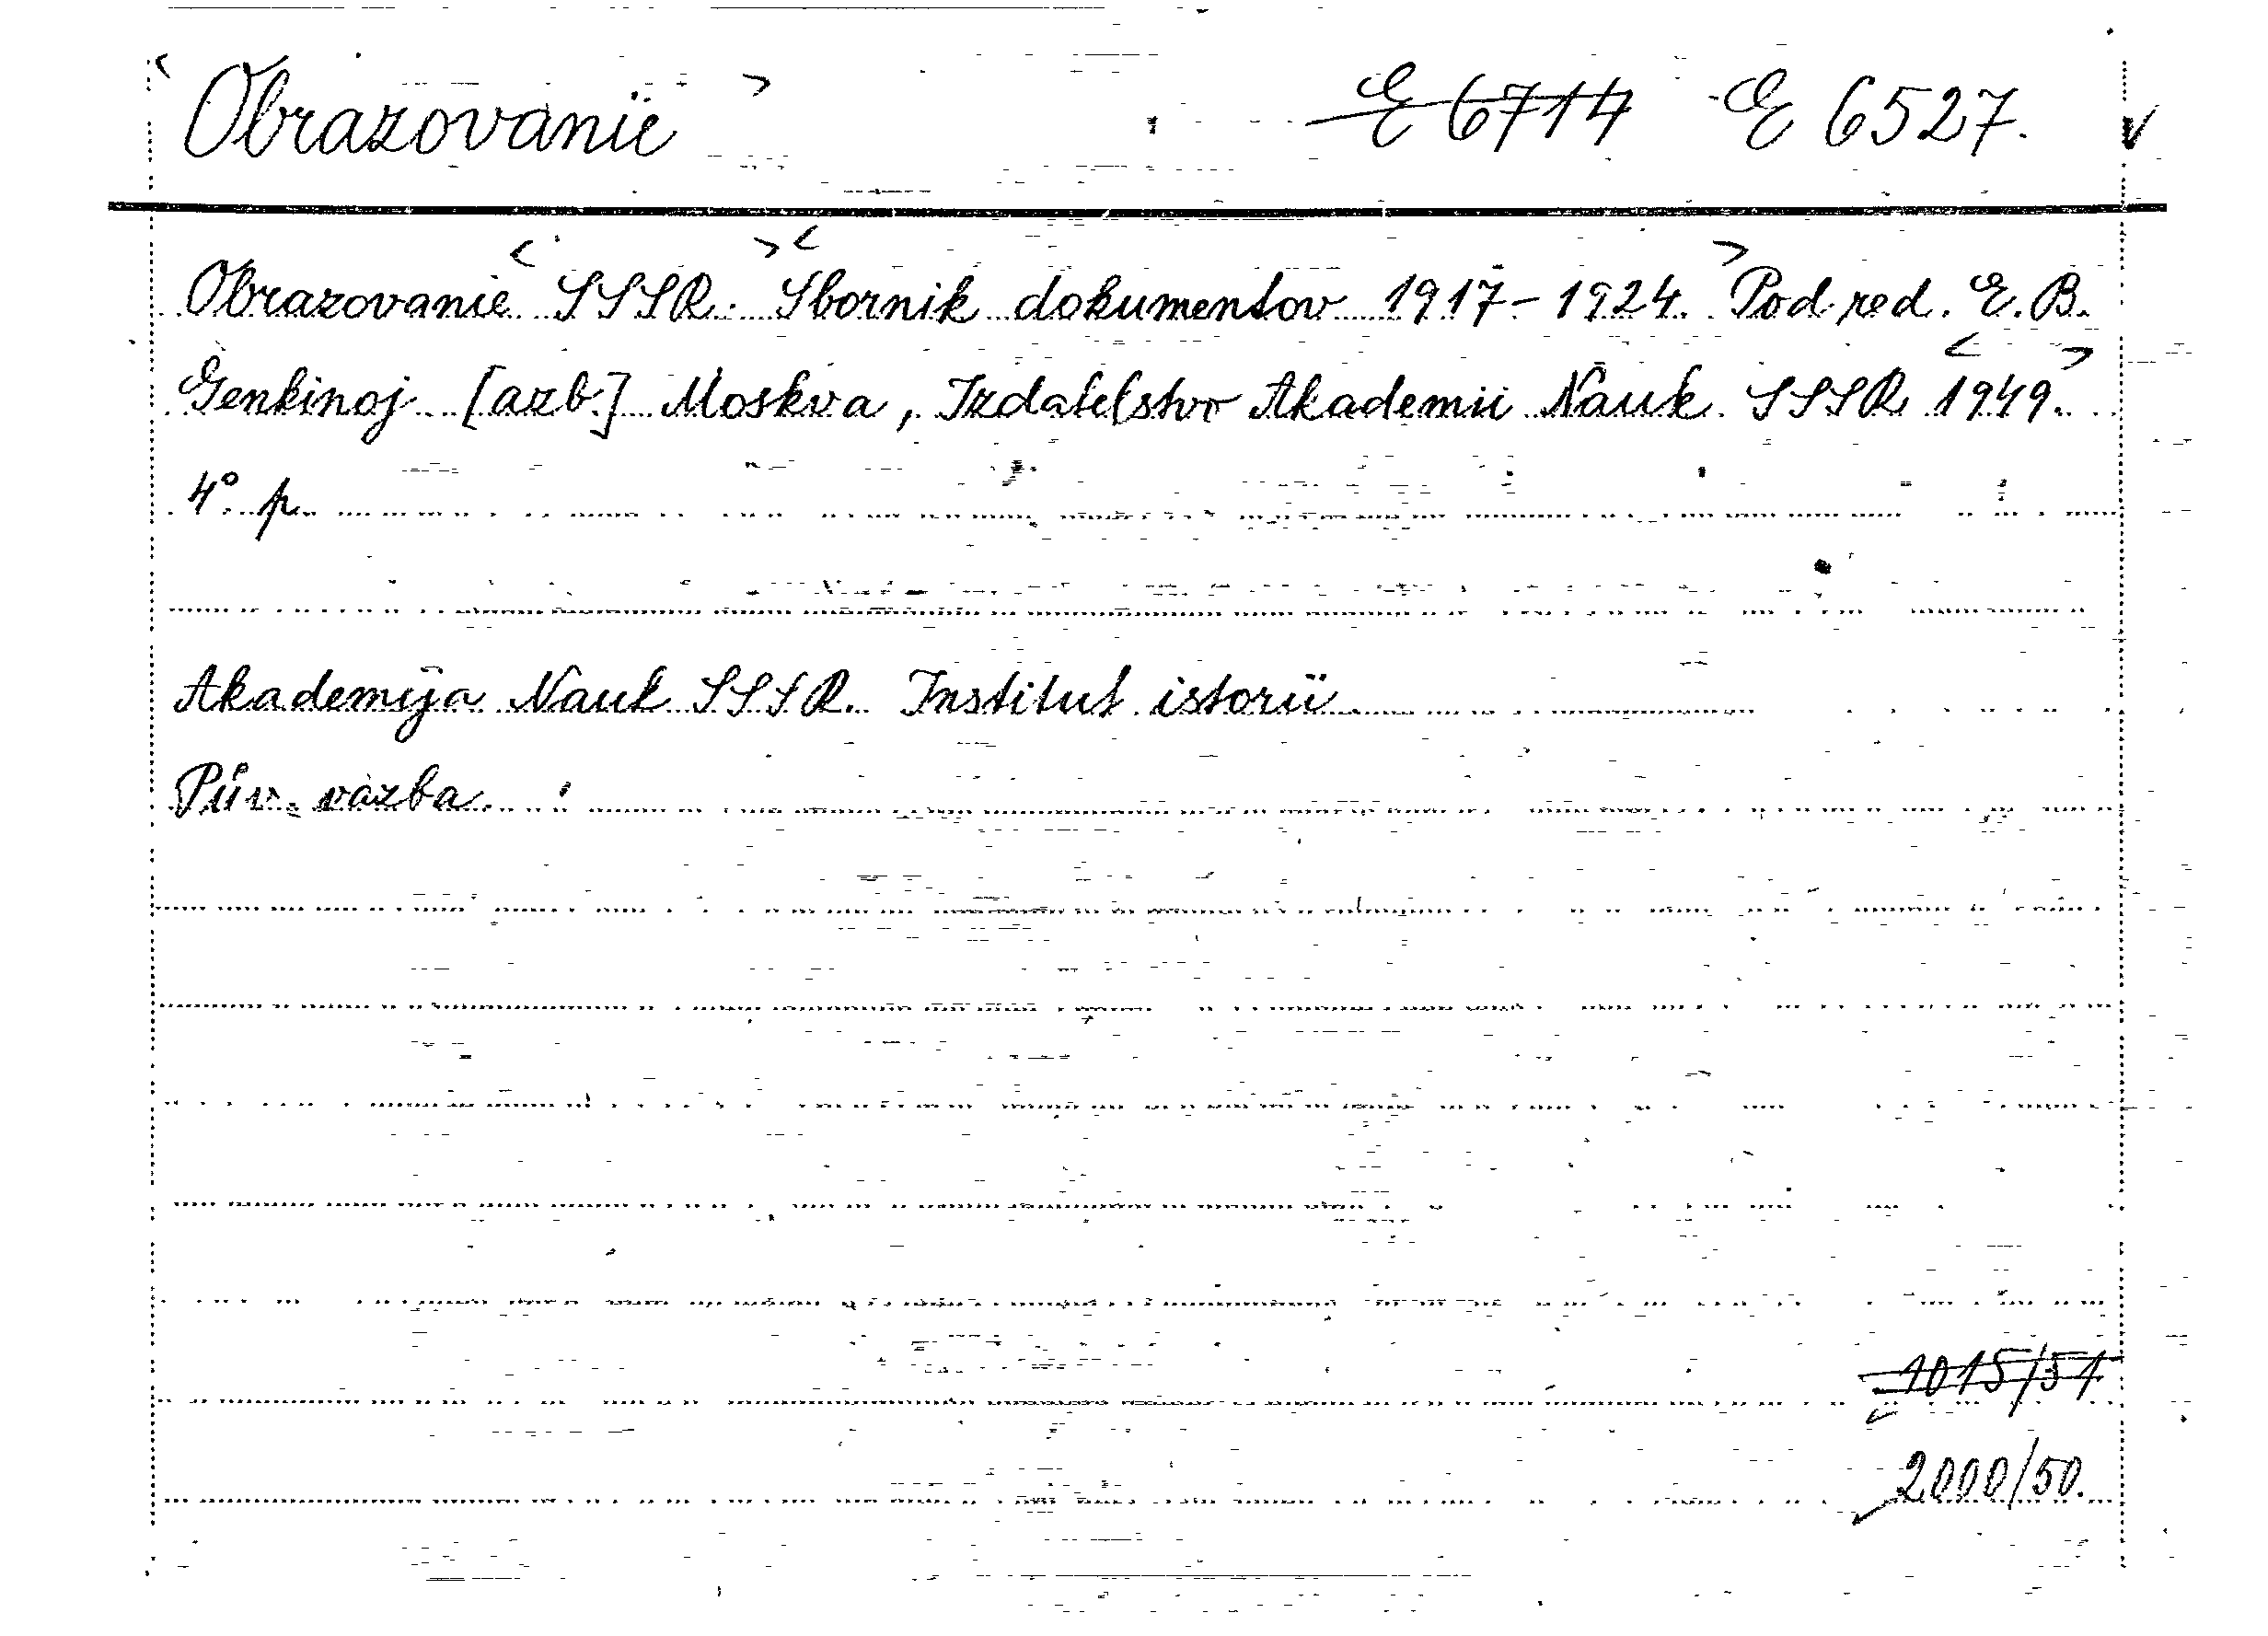 Obrazovanie E 6714 E 6527.
Obrazovanie SSSR. Sbornik dokumentov 1917-1924. Pod red. E. B.
Genkinoj [azb.] Moskva, Izdatelstvo Akademii Nauk SSSR 1949.
4° p.
Akademija Nauk SSSR. Institut istorii
Pův. vazba.
1015/51
2000/50.